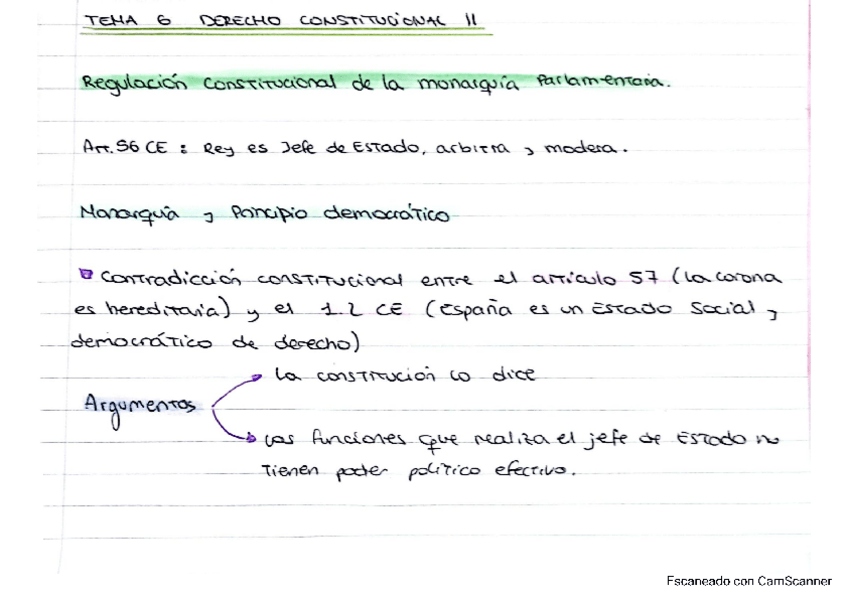 TEMA 6 DERECHO CONSTITUCIONAL II
Regulación constitucional de la monarquía Parlamentaria.
Art. 56 CE : Rey es Jefe de Estado, arbitra y modera.
Monarquía y Principio democrático
Contradicción constitucional entre el artículo 57 (La corona
es hereditaria) y el 1.2 CE (España es un Estado Social y
democrático de derecho)
La constitución lo dice
Argumentos
Las funciones que realiza el jefe de Estado no
tienen poder político efectivo.
Escaneado con CamScanner